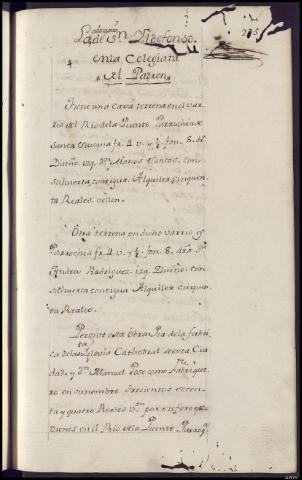 La de Sn. Ildefonso. 205
en la Colegiata
del Padron
Tiene una Casa terrena en el varrio
del Rio de la Puente Parrochia de
Santa Susana fr. 4 v. y ½ fon. 8. dra.
Dueño. izq. Dn. Marcos Santos. con
su huerta contigua. Alquiler cinquen
ta Reales vellon.
Otra terrena en dicho varrio y
Parrochia fr. 4 v. y ½. fon. 8. dra. Dn.
Andres Rodriguez. izq. Dueño. con
su huerta contigua Alquiler cinquen
ta Reales.
Percive esta Obra Pia de la fabri
ca de la Sta. Iglesia Cathedral de esta Ciu
dad. y Dn. Manuel Pose como Fabrique
ro en su nombre Trecientos setenta
y quatro Reales vn. por
vienes en el Rio de la Puente Parroqa.